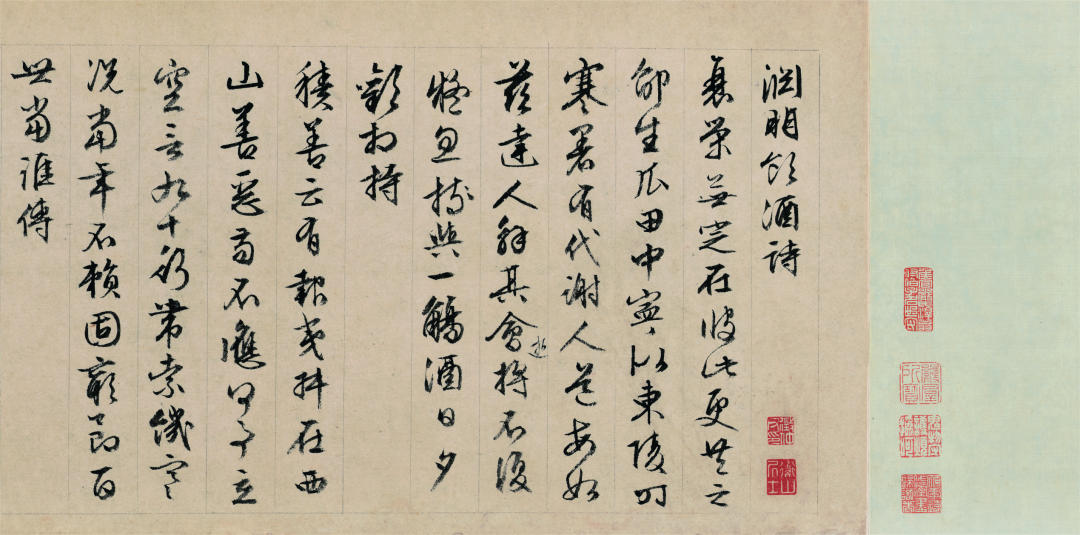 淵明飲酒詩
衰榮無定在彼此更共之
邵生瓜田中寧似東陵時
寒暑有代謝人道每如
茲達人解其會將不復
逝
疑忽持與一觴酒日夕
歡相持
積善云有報夷叔在西
山善惡苟不應何事立
空言九十行帶索飢寒
況當年不賴固窮節百
世當誰傳
徵仲父印
衡山居士